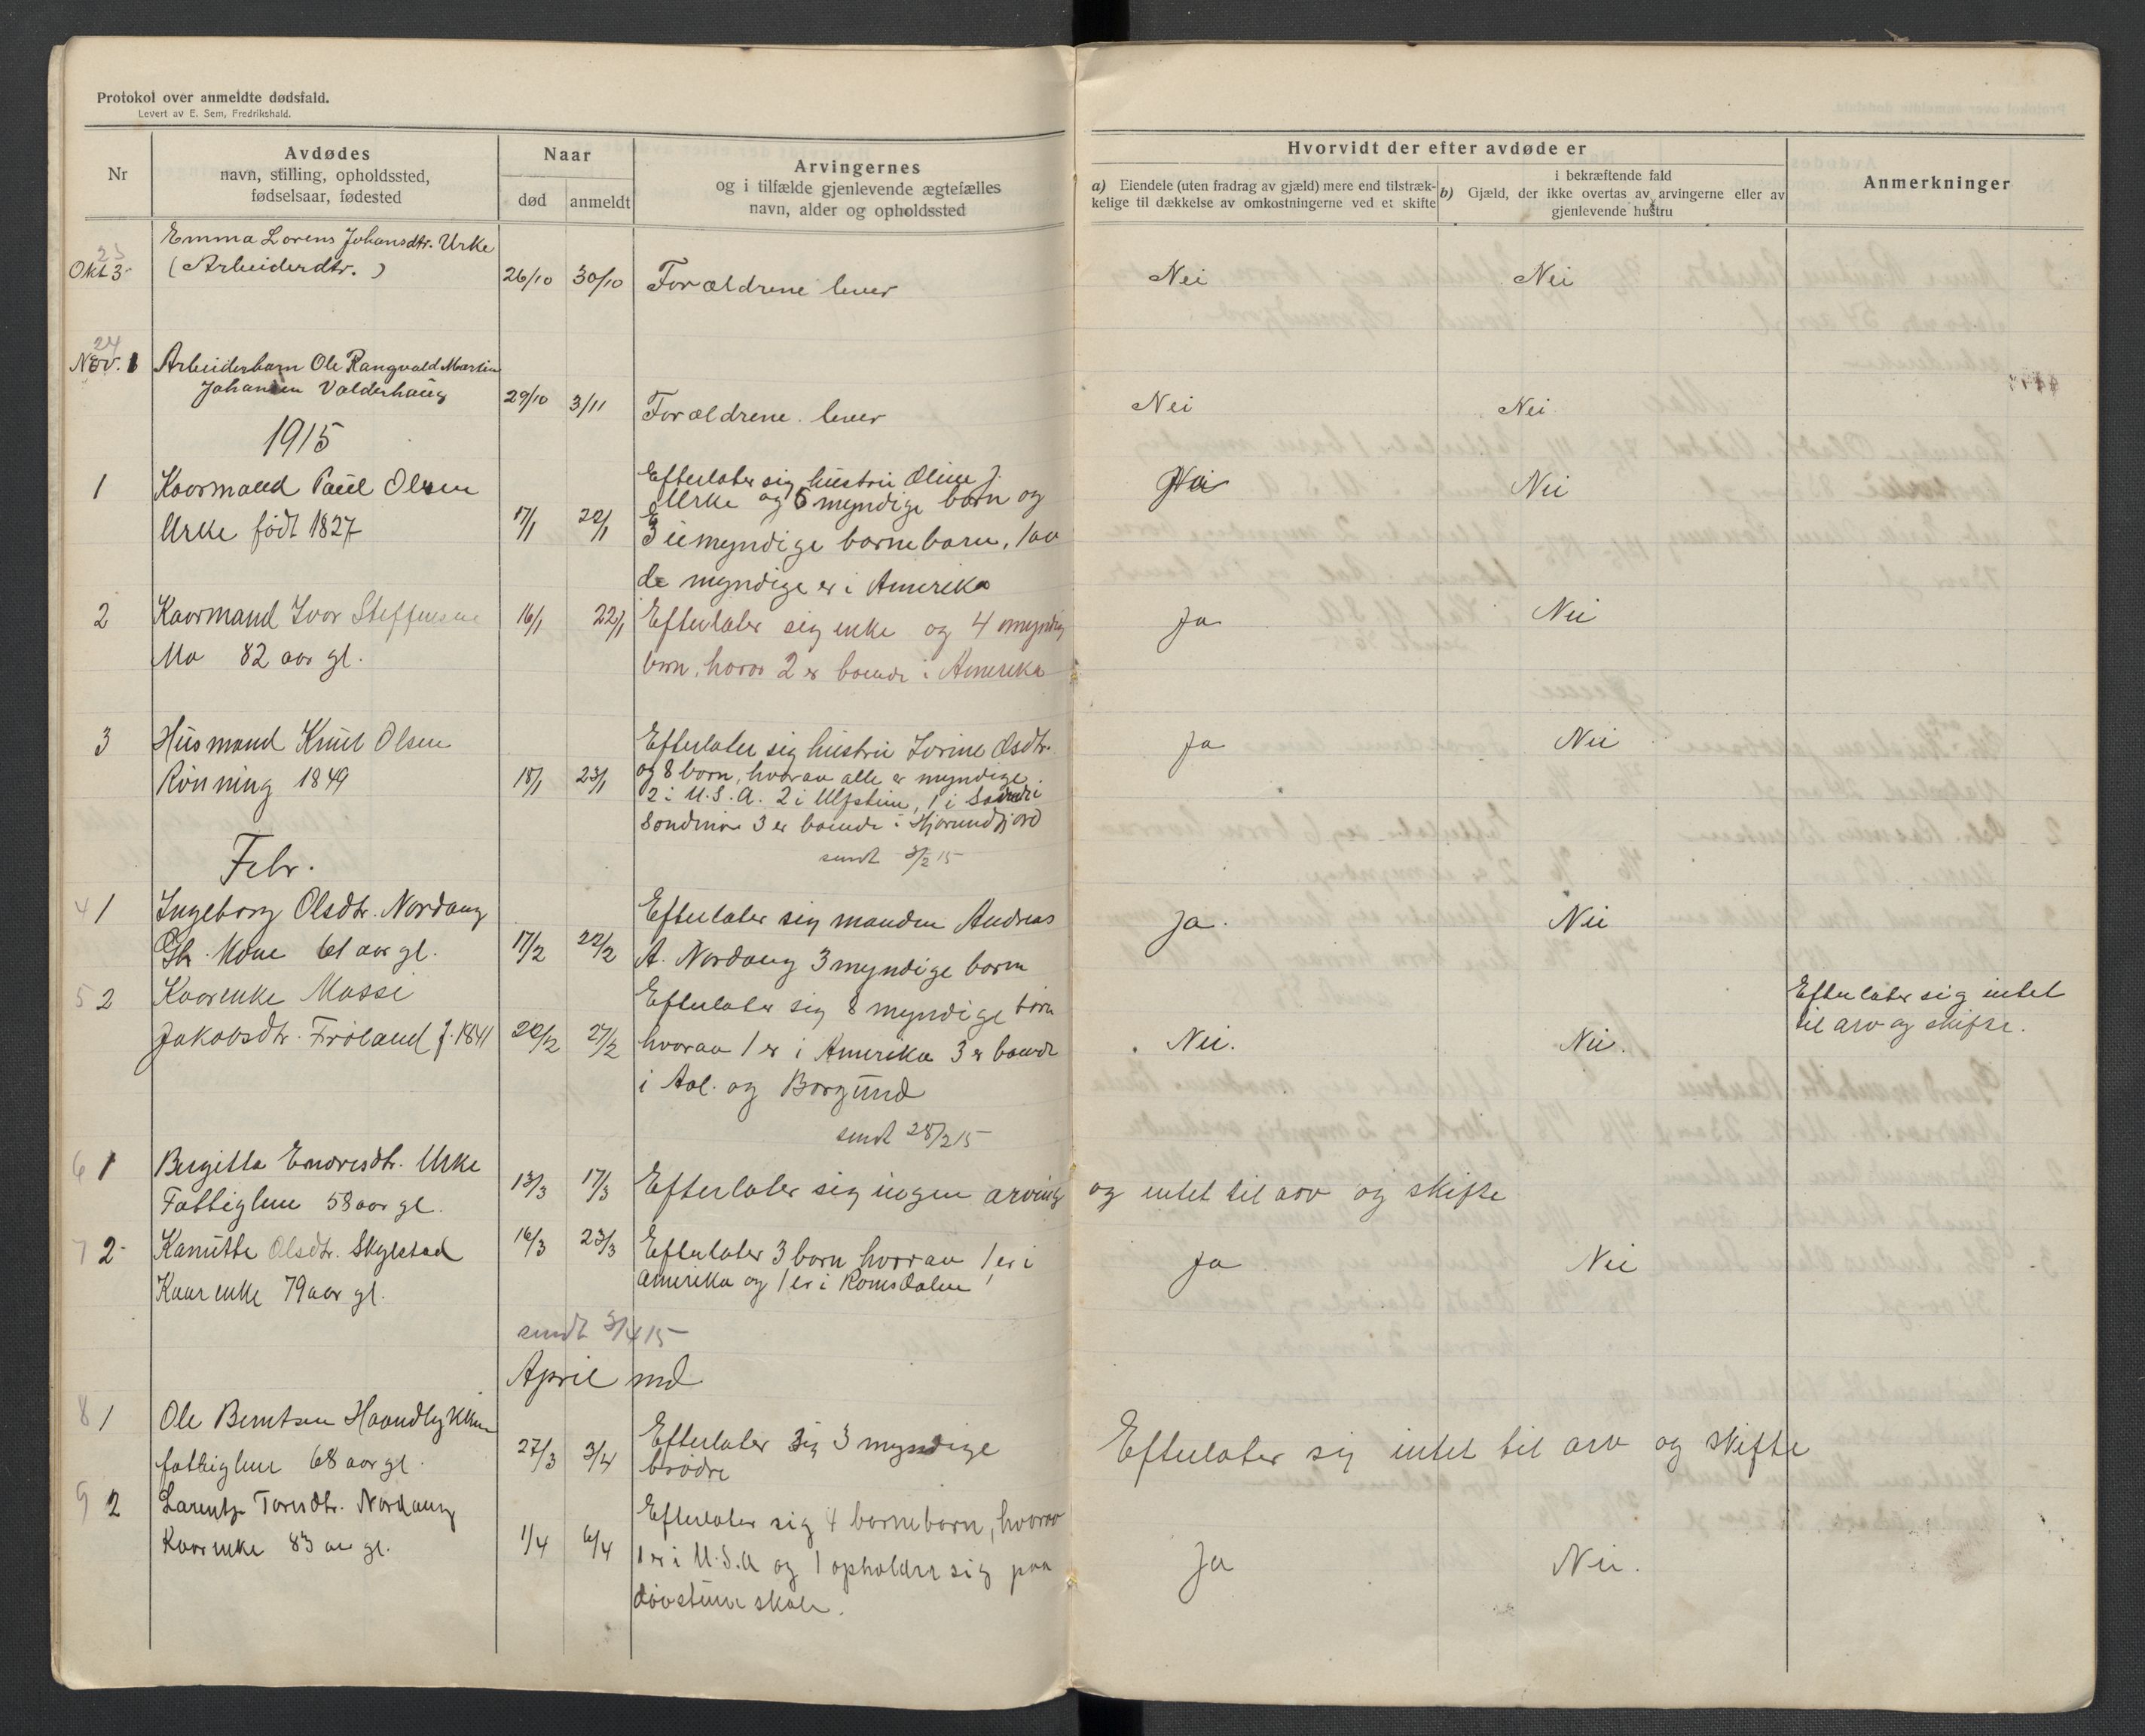 Protokol over anmeldte dødsfald.
Levert av E. Sem, Fredrikshald.
Nr
Avdødes
navn, stilling, opholdssted,
fødselsaar, fødested
Naar
død
anmeldt
Arvingernes
og i tilfælde gjenlevende ægtefælles
navn, alder og opholdssted
Hvorvidt der efter avdøde er
a) Eiendele (uten fradrag av gjæld) mere end tilstræk-
kelige til dækkelse av omkostningerne ved et skifte
i bekræftende fald
b) Gjæld, der ikke overtas av arvingerne eller av
gjenlevende hustru
Anmerkninger
23
Okt 3
Emma Lorens Johansdtr. Urke
(Arbeiderdtr. )
26/10 30/10
Forældrene lever
Nei
Nei
24
Nov. 1
Arbeiderbarn Ole Rangvald Martin
Johansen Valderhaug
29/10 3/11
Forældrene lever
Nei
Nei
1915
1
Kaarmand Paul Olsen
Urke født 1827
17/1 22/1
Efterlater sig hustru Oline J.
Urke og 6 myndige barn og
3 umyndige barnebarn, 1 av
de myndige er i Amerika
Nei
2
Kaarmand Ivar Steffensen
Mo 82 aar gl.
16/1 22/1
Efterlater sig enke og 4 myndig
barn, horav 2 er boende i Amerika
Ja
Nei
3
Husmand Knut Olsen
Rönning 1849
18/1 23/1
Efterlater sig hustru Lorine Osdtr.
og 8 born, hvorav alle er myndige.
2 i U.S.A. 2 i Ulfstein, 1 i Søndre
Sondmør 3 er boende i Hjørundfjord
sendt 3/2 15
Ja
Nei
Febr.
4 1
Ingeborg Olsdtr. Nordang
Kone 61 aar gl.
17/2 22/2
Efterlater sig manden Andreas
A. Nordang 3 myndige born
Ja.
Nei
5 2
Kaarenke Massi
Jakobsdtr. Fröland f. 1841
20/2 27/2
Efterlater sig 8 myndige born
hvorav 1 er i Amerika 3 er boende
i Aal. og Borgund
sendt 28/2 15
Nei.
Nei.
Efterlater sig intet
til arv og skifte.
6 1
Birgitta Endresdtr. Urke
Fattiglem 58 aar gl.
13/3 17/3
Efterlater sig ingen arving og intet til arv og skifte
7 2
Kanutte Olsdtr. Skylstad
Kaarenke 79 aar gl.
16/3 23/3
Efterlater 3 born hvorav 1 er i
Amerika og 1 er i Romsdalen
Ja
Nei
sendt 3/4 15
April md
8 1
Ole Berntsen Haandlykken
fattiglem 68 aar gl.
27/3 3/4
Efterlater sig 3 myndige
brødre
Efterlater sig intet til arv og skifte
9 2
Larentze Toresdtr. Nordang
Kaarenke 83 aar gl.
1/4 6/4
Efterlater sig 4 barnebarn, hvorav
1 er i U.S.A og 1 opholder sig paa
døvstumeskole.
Ja
Nei.